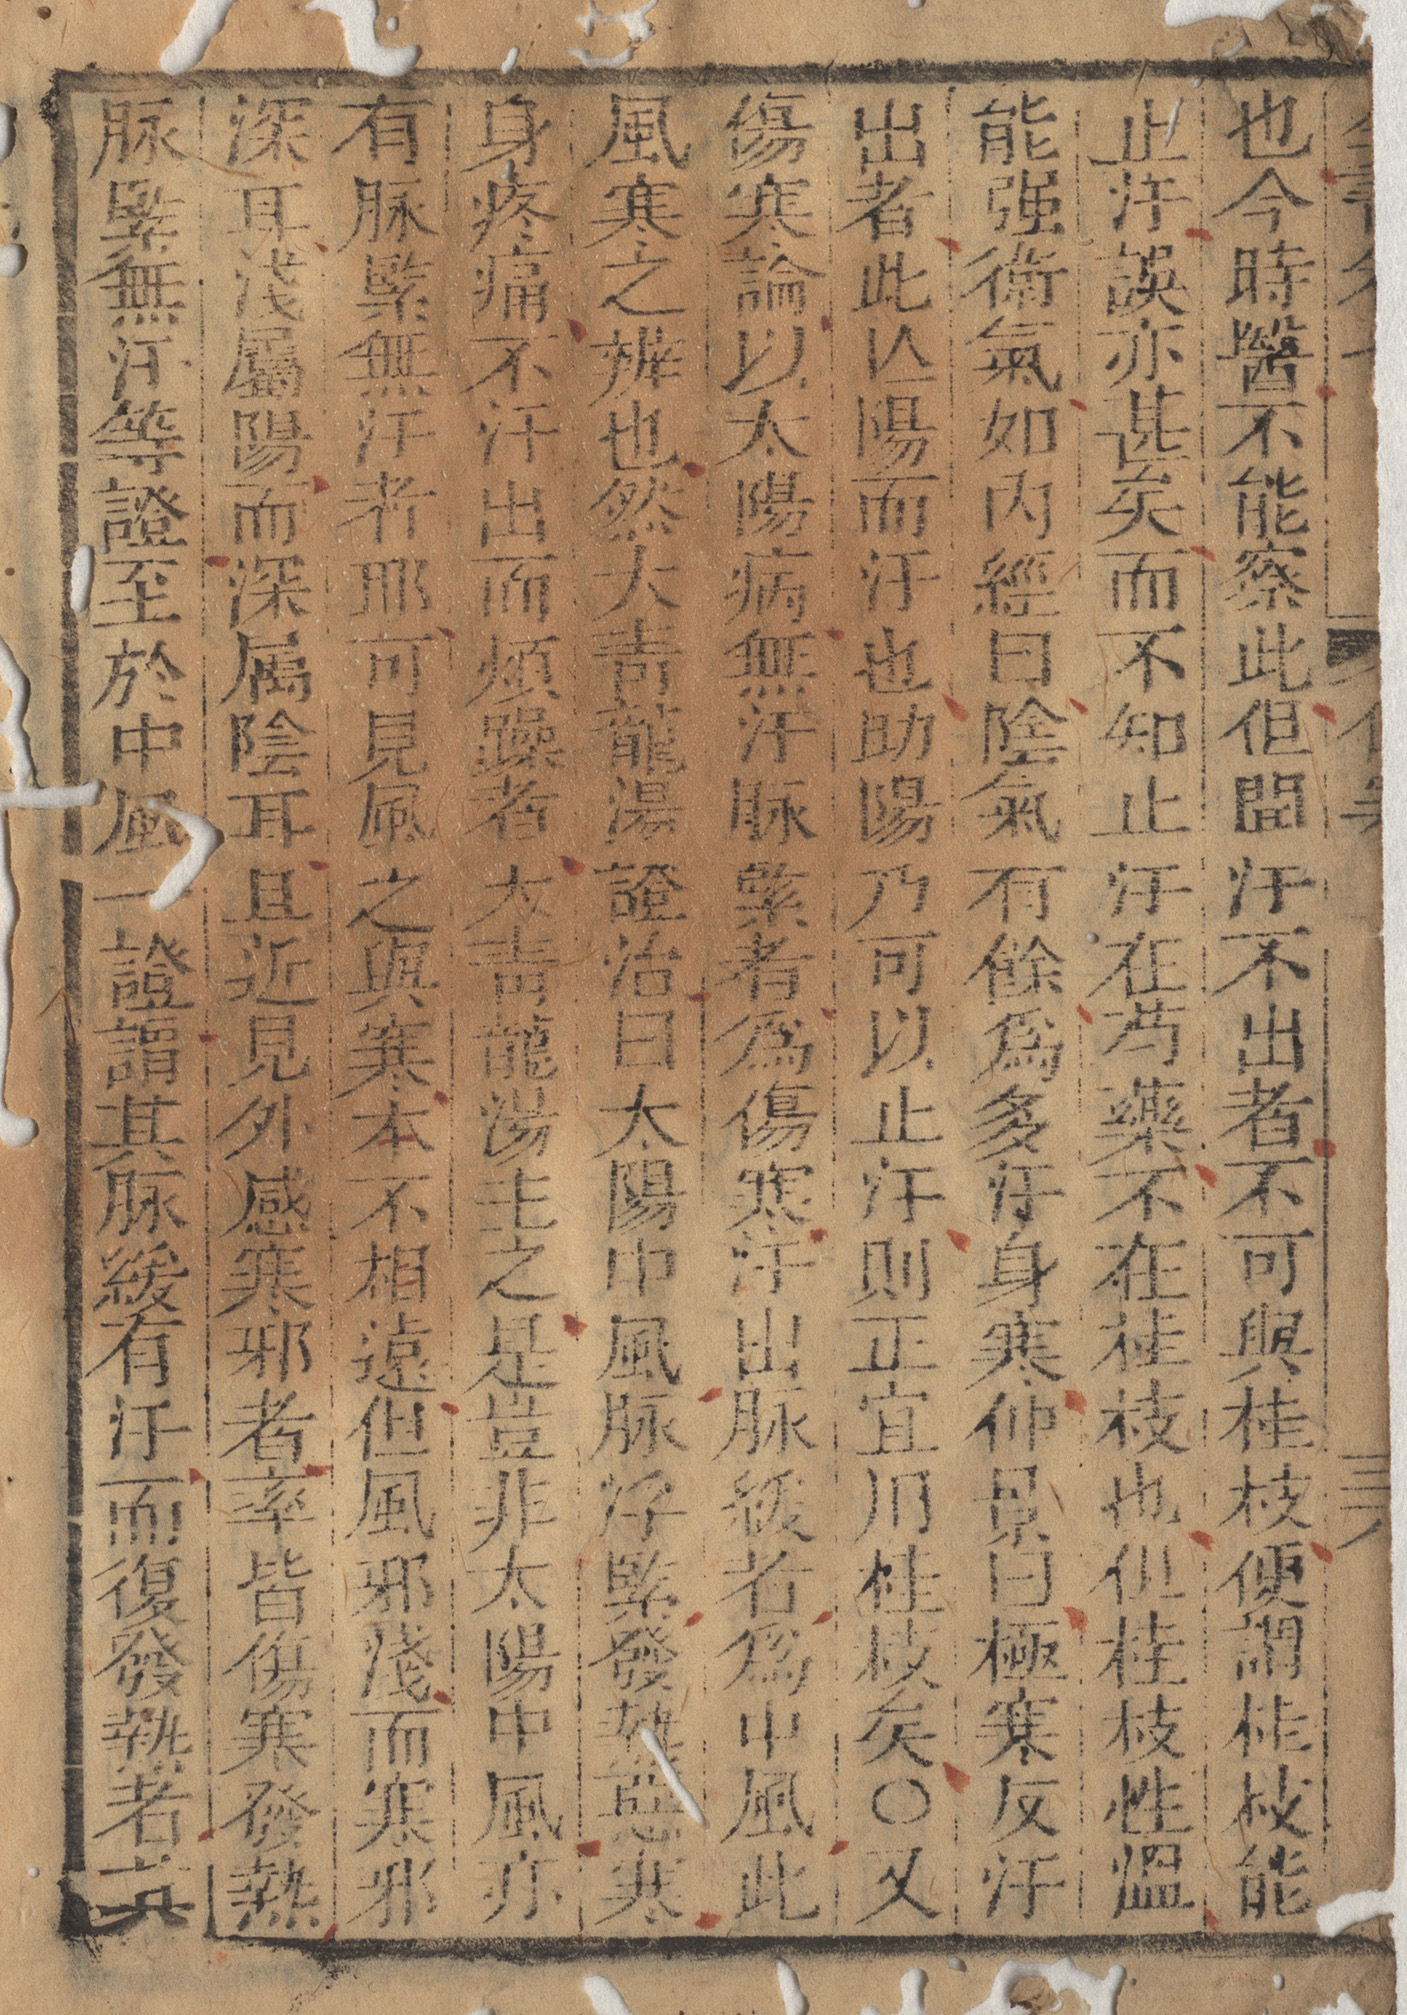 也今時醫不能察此但聞汗不出者不可與桂枝便謂桂枝能
止汗誤亦甚矣而不知止汗在芍藥不在桂枝也但桂枝性溫
能强衛氣如內經曰陰氣有餘爲多汗身寒仲景曰極寒反汗
出者此亾陽而汗也助陽乃可以止汗則正宜用桂枝矣〇又
傷寒論以太陽病無汗脉緊者爲傷寒汗出脉緩者爲中風此
風寒之辨也然大青龍湯證治曰太陽中風脉浮緊發熱惡寒
身疼痛不汗出而煩躁者大青龍湯主之是豈非太陽中風亦
有脉緊無汗者耶可見風之與寒本不相遠但風邪淺而寒邪
深耳淺屬陽而深属陰耳且近見外感寒邪者率皆傷寒發熱
脉緊無汗等證至於中風一證謂其脉緩有汗而復發熱者其